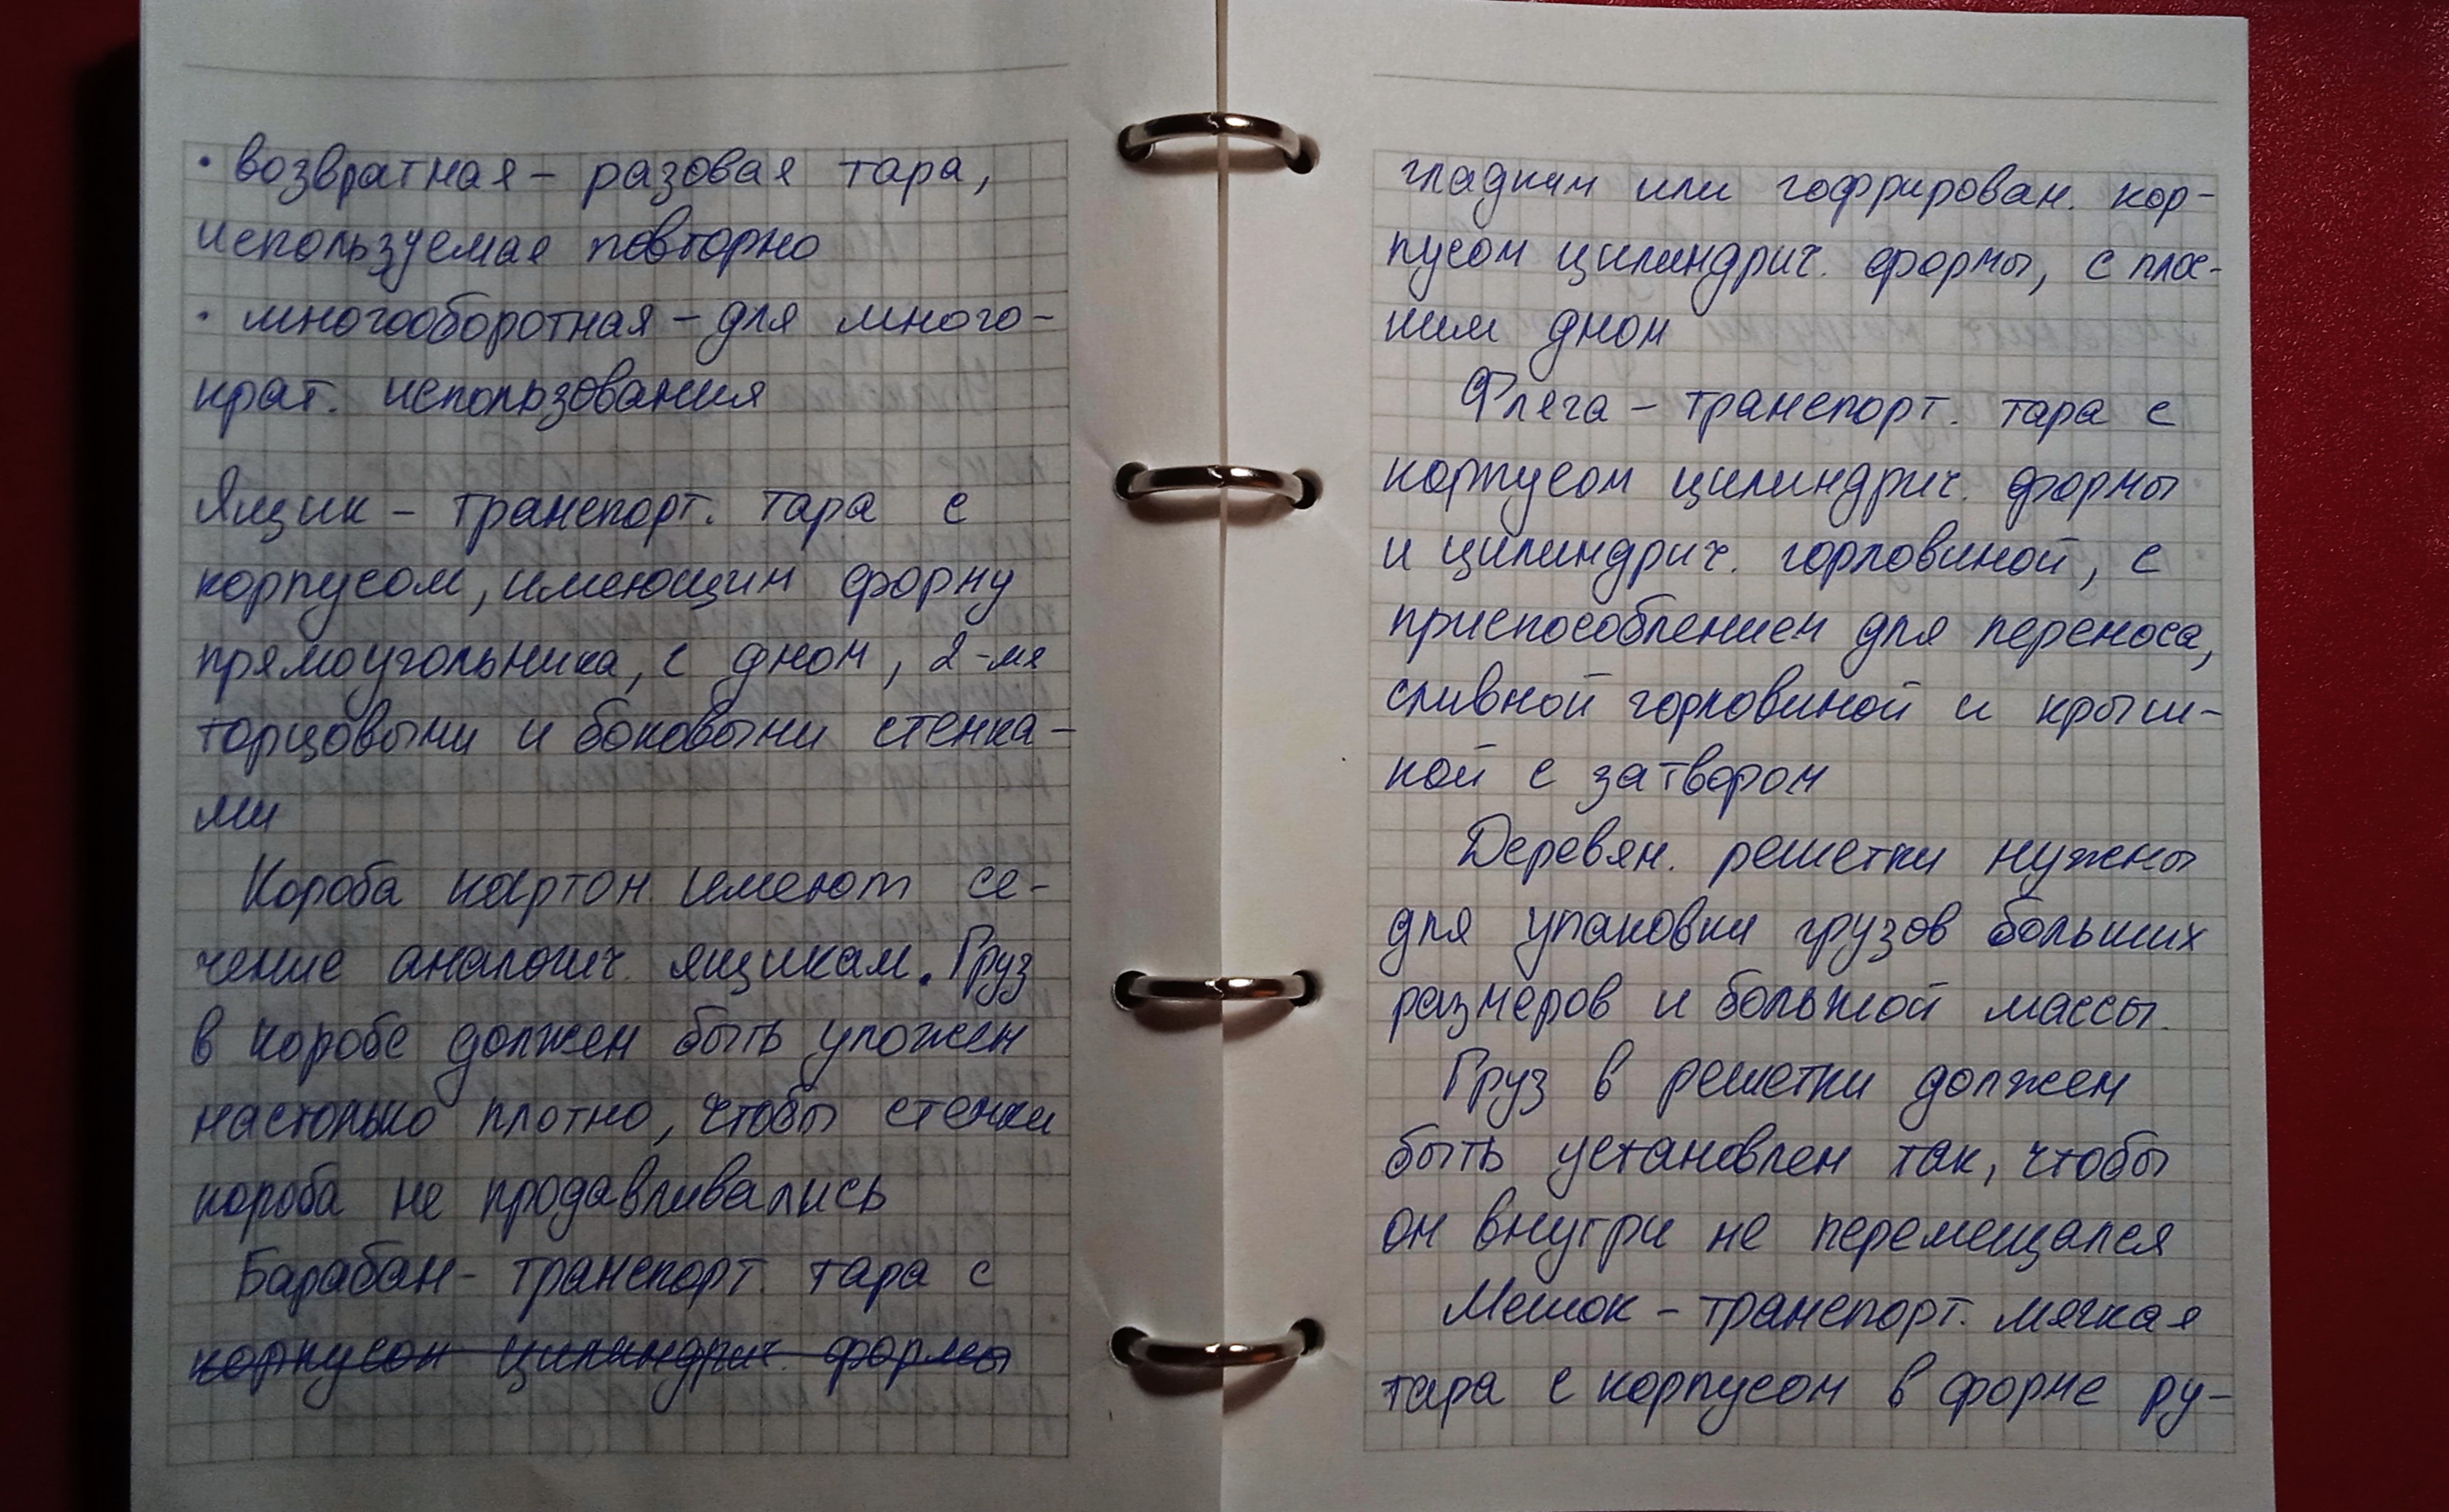 • возвратная – разовая тара,
используемая повторно
• многооборотная – для много-
крат. использования
Ящик – транспорт. тара с
корпусом, имеющим форму
прямоугольника, с дном, 2-мя
торцовыми и боковыми стенка-
ми
Короба картон. имеют се-
чение аналогич. ящикам. Груз
в коробе должен быть уложен
настолько плотно, чтобы стенки
короба не продавливались
Барабан – транспорт. тара с
корпусом цилиндрич. формы
гладким или гофрирован. кор-
пусом цилиндрич. формы, с плос-
ким дном
Фляга – транспорт. тара с
корпусом цилиндрич. формы
и цилиндрич. горловиной, с
приспособлением для переноса,
сливной горловиной и крыш-
кой с затвором
Деревян. решетки нужны
для упаковки грузов больших
размеров и большой массы.
Груз в решетки должен
быть установлен так, чтобы
он внутри не перемещался
Мешок – транспорт. мягкая
тара с корпусом в форме ру-